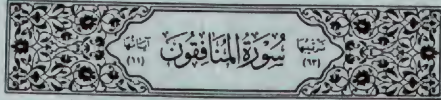 تَرْتِيبُهَا سُورَةُ المُنَافِقُونَ آيَاتُهَا
(٦٣) (١١)